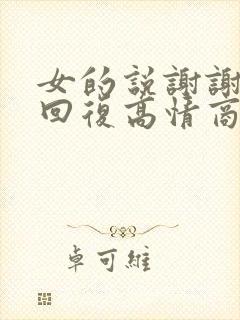 女的說謝謝
回復高情商
卓可維